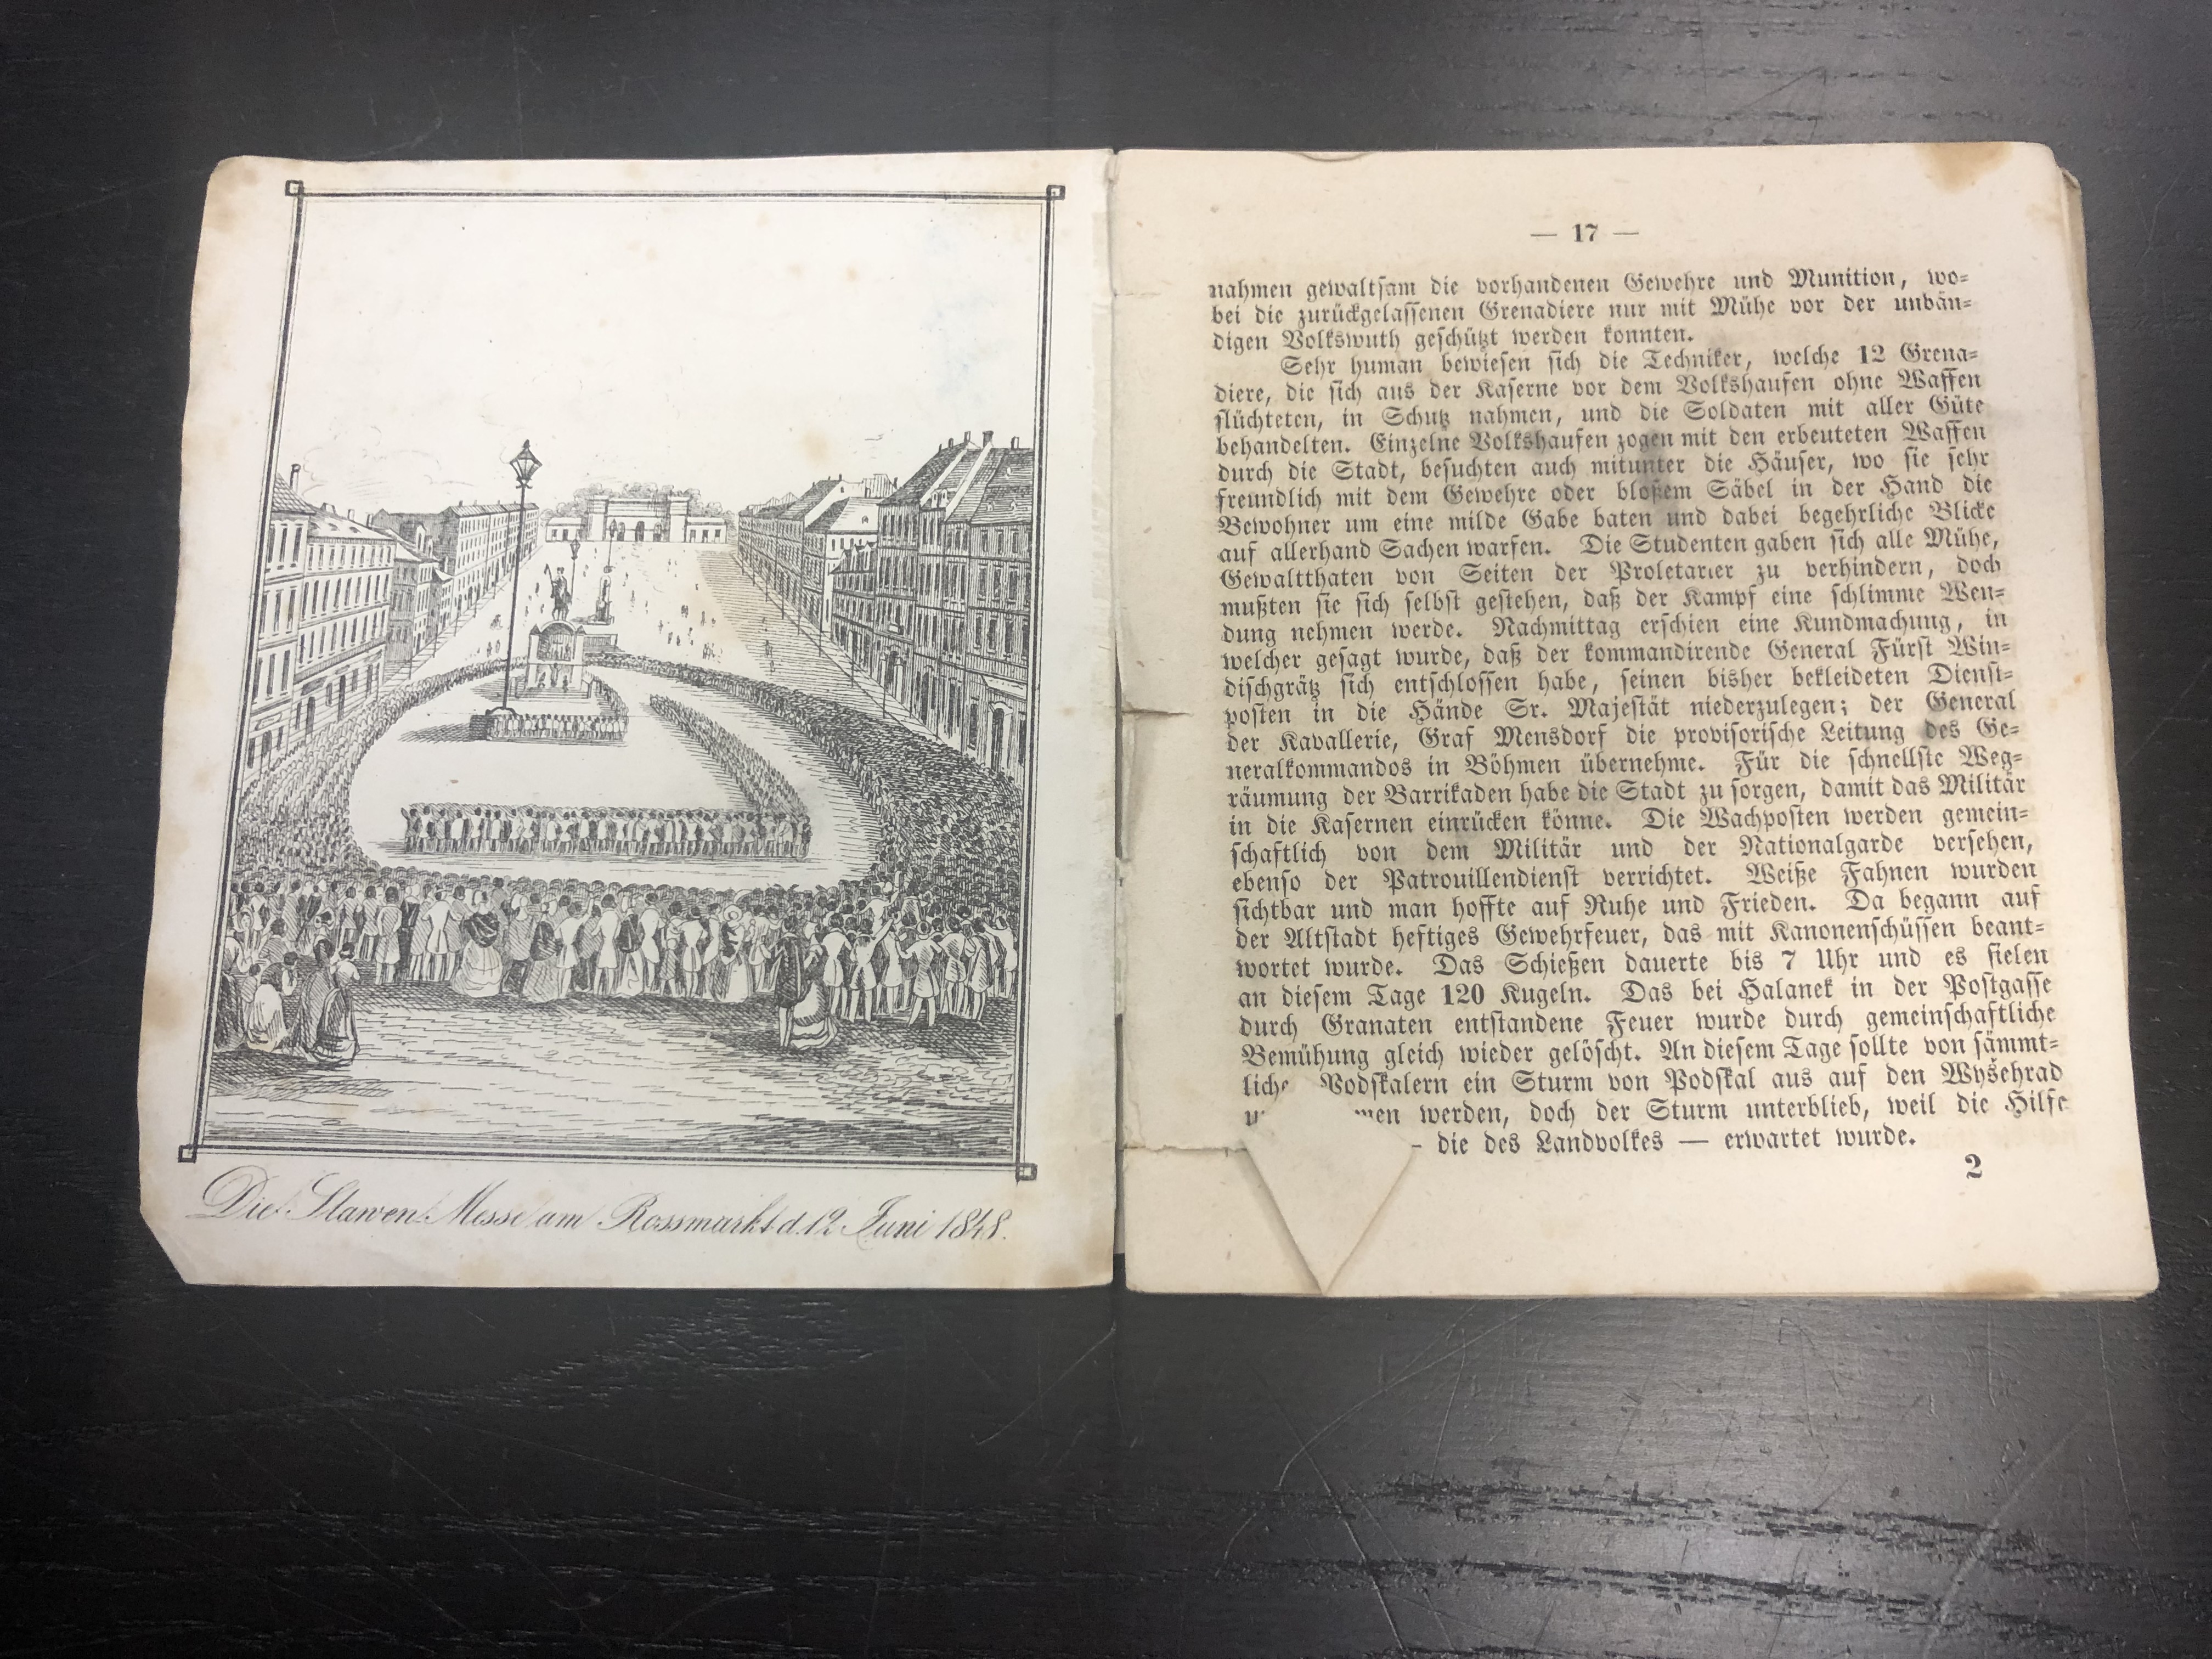 Die Slawen Messe am Rossmarkt d. 12 Juni 1848.
— 17 —
nahmen gewaltsam die vorhandenen Gewehre und Munition, wo-
bei die zurückgelassenen Grenadiere nur mit Mühe vor der unbän-
digen Volkswuth geschützt werden konnten.
Sehr human bewiesen sich die Techniker, welche 12 Grena-
diere, die sich aus der Kaserne vor dem Volkshaufen ohne Waffen
flüchteten, in Schutz nahmen, und die Soldaten mit aller Güte
behandelten. Einzelne Volkshaufen zogen mit den erbeuteten Waffen
durch die Stadt, besuchten auch mitunter die Häuser, wo sie sehr
freundlich mit dem Gewehre oder bloßem Säbel in der Hand die
Bewohner um eine milde Gabe baten und dabei begehrliche Blicke
auf allerhand Sachen warfen. Die Studenten gaben sich alle Mühe,
Gewaltthaten von Seiten der Proletarier zu verhindern, doch
mußten sie sich selbst gestehen, daß der Kampf eine schlimme Wen-
dung nehmen werde. Nachmittag erschien eine Kundmachung, in
welcher gesagt wurde, daß der kommandirende General Fürst Win-
dischgrätz sich entschlossen habe, seinen bisher bekleideten Dienst-
posten in die Hände Sr. Majestät niederzulegen; der General
der Kavallerie, Graf Mensdorf die provisorische Leitung des Ge-
neralkommandos in Böhmen übernehme. Für die schnellste Weg-
räumung der Barrikaden habe die Stadt zu sorgen, damit das Militär
in die Kasernen einrücken könne. Die Wachposten werden gemein-
schaftlich von dem Militär und der Nationalgarde versehen,
ebenso der Patrouillendienst verrichtet. Weiße Fahnen wurden
sichtbar und man hoffte auf Ruhe und Frieden. Da begann auf
der Altstadt heftiges Gewehrfeuer, das mit Kanonenschüssen beant-
wortet wurde. Das Schießen dauerte bis 7 Uhr und es fielen
an diesem Tage 120 Kugeln. Das bei Halanek in der Postgasse
durch Granaten entstandene Feuer wurde durch gemeinschaftliche
Bemühung gleich wieder gelöscht. An diesem Tage sollte von sämmt-
liche Podskalern ein Sturm von Podskal aus auf den Wyšehrad
men werden, doch der Sturm unterblieb, weil die Hilfe
– die des Landvolkes — erwartet wurde.
2